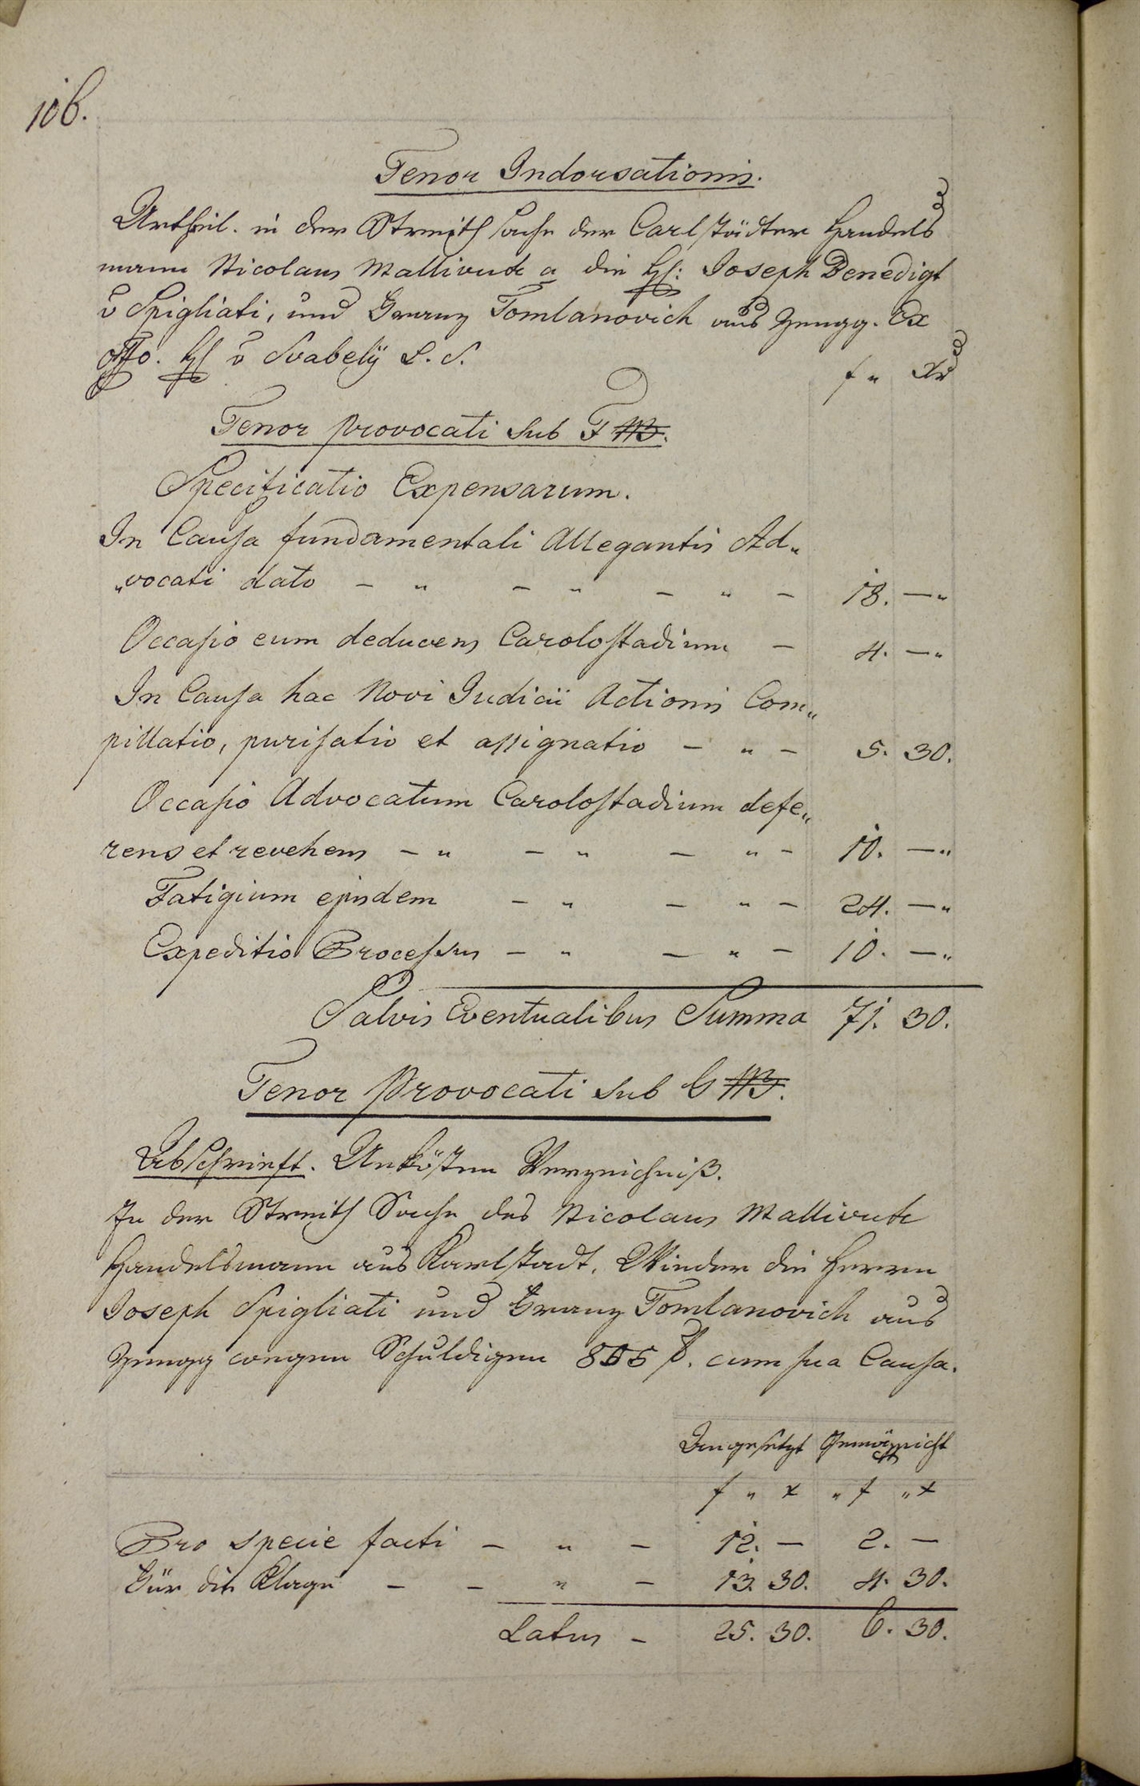 106.
Tenor Indorsationis.
Urtheil. in der Streith sache der Carlstädter Handels
mann Nicolaus Mallivuk a die H: Joseph Benedigt
v Spigliati, und Franz Tomlanovich aus Zengg. Ex
offo. H v Svabelÿ L. S.
f „ Xr
Tenor provocati sub F
Specificatio Expensarum.
In Causa fundamentali Allegantis Ad„
„vocati dato – „ – „ – „ – 18. –„
Occasio eum deducens Carolostadium – 4. –„
In Causa hac Novi Judicii Actionis Com„
pillatio, purisatio et assignatio – „ – 5. 30.
Occasio Advocatum Carolostadium defe„
rens et revehens – „ – „ – „ – 10. –„
Fatigium ejusdem – „ – „ – 24. –„
Expeditio Processus – „ – „ – 10. –„
Salvis Eventualibus Summa 71. 30.
Tenor Provocati sub G
Abschrieft. Unkösten Verzeichniß.
In der Streith Sache des Nicolaus Mallivuk
Handelsmann aus Karlstadt. Wieder die Herrn
Joseph Spigliati und Franz Tomlanovich aus
Zengg wegen Schuldigen 805 f. cum sua Causa.
Angesetzt Gemäßigt
f „ x „ f „ x
Pro specie facti – „ – 12. – 2. –
Für die Klage – – „ – 13. 30. 4. 30.
Latus – 25. 30. 6. 30.